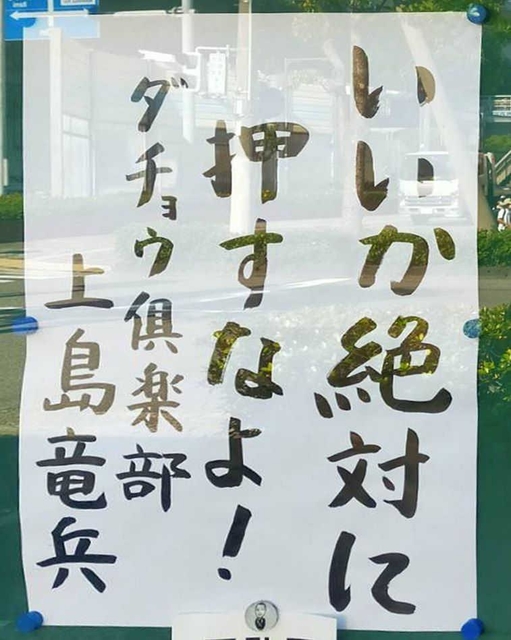 いいか絶対に
押すなよ！
ダチョウ倶楽部
上島竜兵